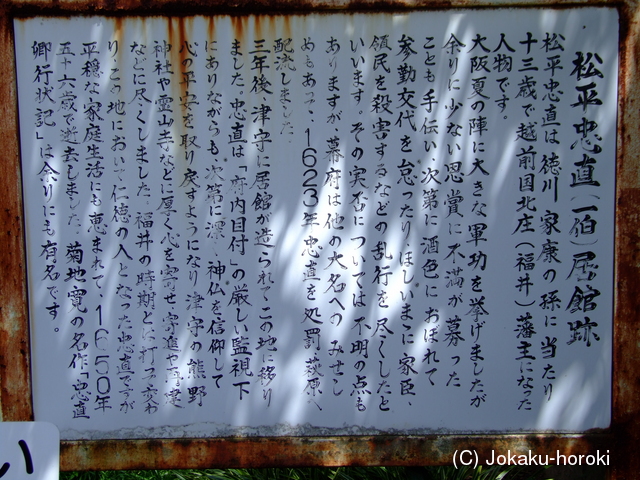 松平忠直(一伯)居館跡
松平忠直は徳川家康の孫に当たり
十三歳で越前国北庄(福井)藩主になった
人物です。
大阪夏の陣に大きな軍功を挙げましたが
余りに少ない恩賞に不満が募った
ことも手伝い、次第に酒色におぼれて
参勤交代を怠ったり、ほしいままに家臣、
領民を殺害するなどの乱行を尽くしたと
いいます。その実否については不明の点も
ありますが、幕府は他の大名へのみせし
めもあり、1623年忠直を処罰、萩原へ
配流しました。
三年後、津守に居館が造られてこの地に移り
ました。忠直は「府内目付」の厳しい監視下
にありながらも、次第に深く神仏を信仰して
心の平安を取り戻すようになり津守の熊野
神社や霊山寺などに厚く心を寄せ、寄進や再建
などに尽くしました。福井の時期とは打って変わ
り、この地において仁徳の人となった忠直ですが
平穏な家庭生活にも恵まれて、1650年
五十六歳で逝去しました。菊地寛の名作「忠直
卿行状記」は余りにも有名です。
い
(C) Jokaku-horoki